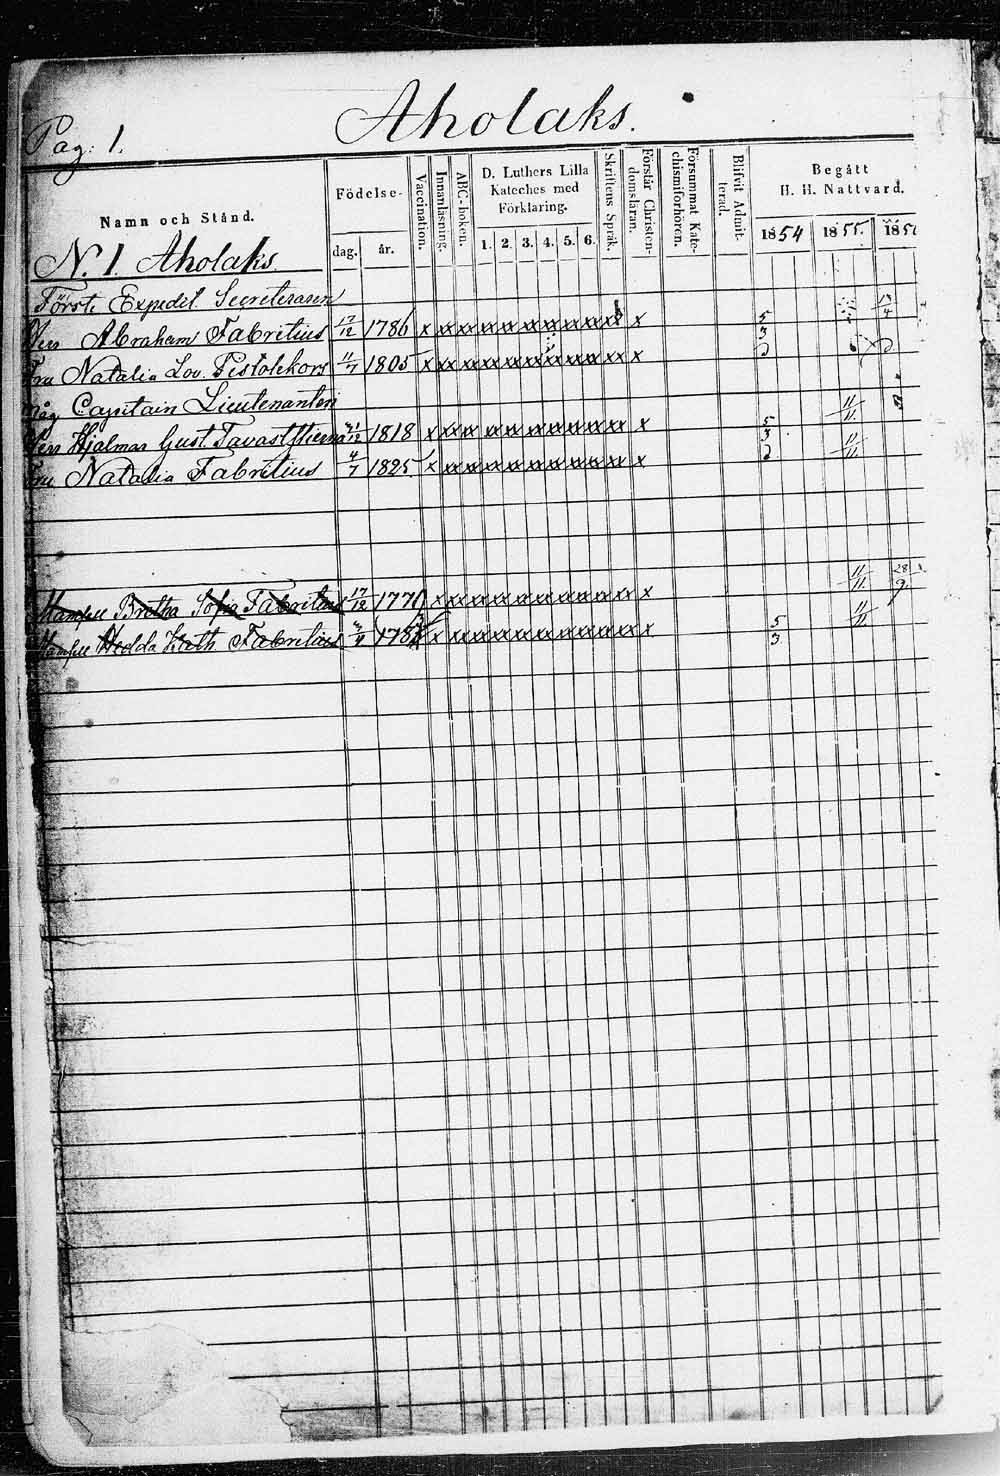 Pag: 1.
Aholaks.
Namn och Stånd.
Födelse-
dag. år.
Vaccination.
Innanläsning.
ABC-boken.
D. Luthers Lilla
Kateches med
Förklaring.
1. 2. 3. 4. 5. 6.
Skriftens Språk.
Förstår Christen-
domsläran.
Försummat Kate-
chismiförhören.
Blifvit Admit-
terad.
Begått
H. H. Nattvard.
1854 1855. 185
N. 1. Aholaks
Förste Expedit. Secreteraren
Abraham Fabritius 17/12 1786 x xx xx xx xx xx xx xx xx xx x 5/3 13/4
Fru Natalia Lov. Pistolekors 11/7 1805 x xx xx xx xx xx xx xx xx xx x
Capitain Lieutenanten
Herr Hjalmar Gust. Tavaststierna 1818 x xx xx xx xx xx xx xx xx x 5/3 11/11
Fru Natalia Fabritius 4/7 1825 x xx xx xx xx xx xx xx xx xx x 11/11
Mamsell Britha Sofia Fabritius 17/12 1770 x xx xx xx xx xx xx xx xx xx x 11/11 28/9
Mamsell Hedda Kath. Fabritius x xx xx xx xx xx xx xx xx xx x 5/3 11/11